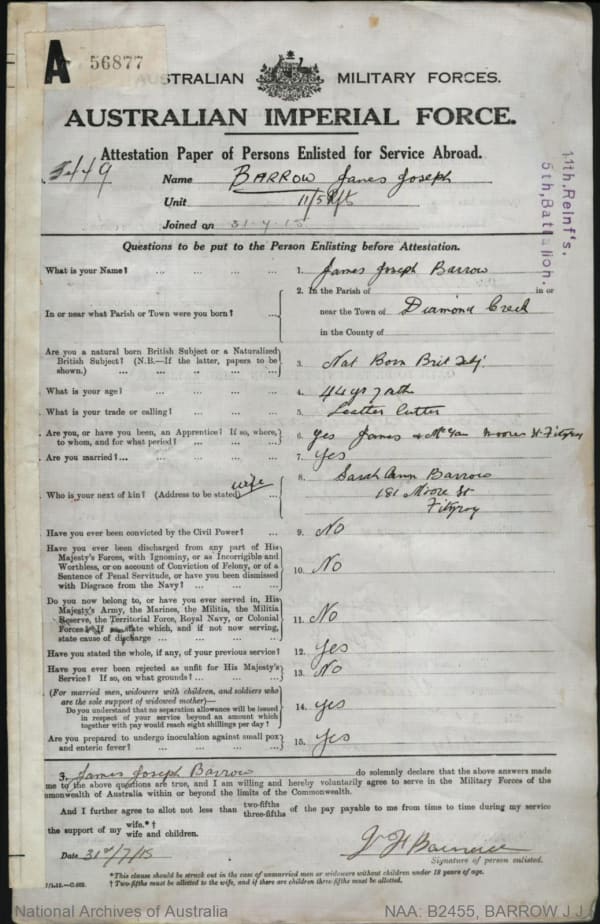 A 56877
AUSTRALIAN MILITARY FORCES.
AUSTRALIAN IMPERIAL FORCE.
Attestation Paper of Persons Enlisted for Service Abroad.
3449
Name BARROW James Joseph
Unit 11/5 Rfts
Joined on 31-7-15
11th, Reinf's.
5th, Battalion.
Questions to be put to the Person Enlisting before Attestation.
What is your Name? ... ... ... ... 1. James Joseph Barrow
In or near what Parish or Town were you born? ... 2. In the Parish of in or
near the Town of Diamond Creek
in the County of
Are you a natural born British Subject or a Naturalized
British Subject? (N.B.—If the latter, papers to be
shown.) ... ... ... ... ... 3. Nat Born Brit Subj.
What is your age? ... ... ... ... 4. 44 yrs 7 mths
What is your trade or calling? ... ... ... 5. Leather Cutter
Are you, or have you been, an Apprentice? If so, where,
to whom, and for what period? ... ... ... 6. Yes James Moore St Fitzroy
Are you married? ... ... ... ... 7. Yes
Who is your next of kin? (Address to be stated) wife 8. Sarah Ann Barrow
181 Moore St
Fitzroy
Have you ever been convicted by the Civil Power? ... 9. No
Have you ever been discharged from any part of His
Majesty's Forces, with Ignominy, or as Incorrigible and
Worthless, or on account of Conviction of Felony, or of a
Sentence of Penal Servitude, or have you been dismissed
with Disgrace from the Navy? ... ... ... 10. No
Do you now belong to, or have you ever served in, His
Majesty's Army, the Marines, the Militia, the Militia
Reserve, the Territorial Force, Royal Navy, or Colonial
Forces? If so, state which, and if not now serving,
state cause of discharge ... ... ... 11. No
Have you stated the whole, if any, of your previous service? 12. Yes
Have you ever been rejected as unfit for His Majesty's
Service? If so, on what grounds? ... ... ... 13. No
(For married men, widowers with children, and soldiers who
are the sole support of widowed mother)—
Do you understand that no separation allowance will be issued
in respect of your service beyond an amount which
together with pay would reach eight shillings per day? 14. Yes
Are you prepared to undergo inoculation against small pox
and enteric fever? ... ... ... ... 15. Yes
I, James Joseph Barrow do solemnly declare that the above answers made
me to the above questions are true, and I am willing and hereby voluntarily agree to serve in the Military Forces of the
mmonwealth of Australia within or beyond the limits of the Commonwealth.
And I further agree to allot not less than two-fifths three-fifths of the pay payable to me from time to time during my service
the support of my wife.*† wife and children.
Date 31st/7/15
Signature of person enlisted.
*This clause should be struck out in the case of unmarried men or widowers without children under 18 years of age.
† Two-fifths must be allotted to the wife, and if there are children three-fifths must be allotted.
National Archives of Australia
NAA: B2455, BARROW J J